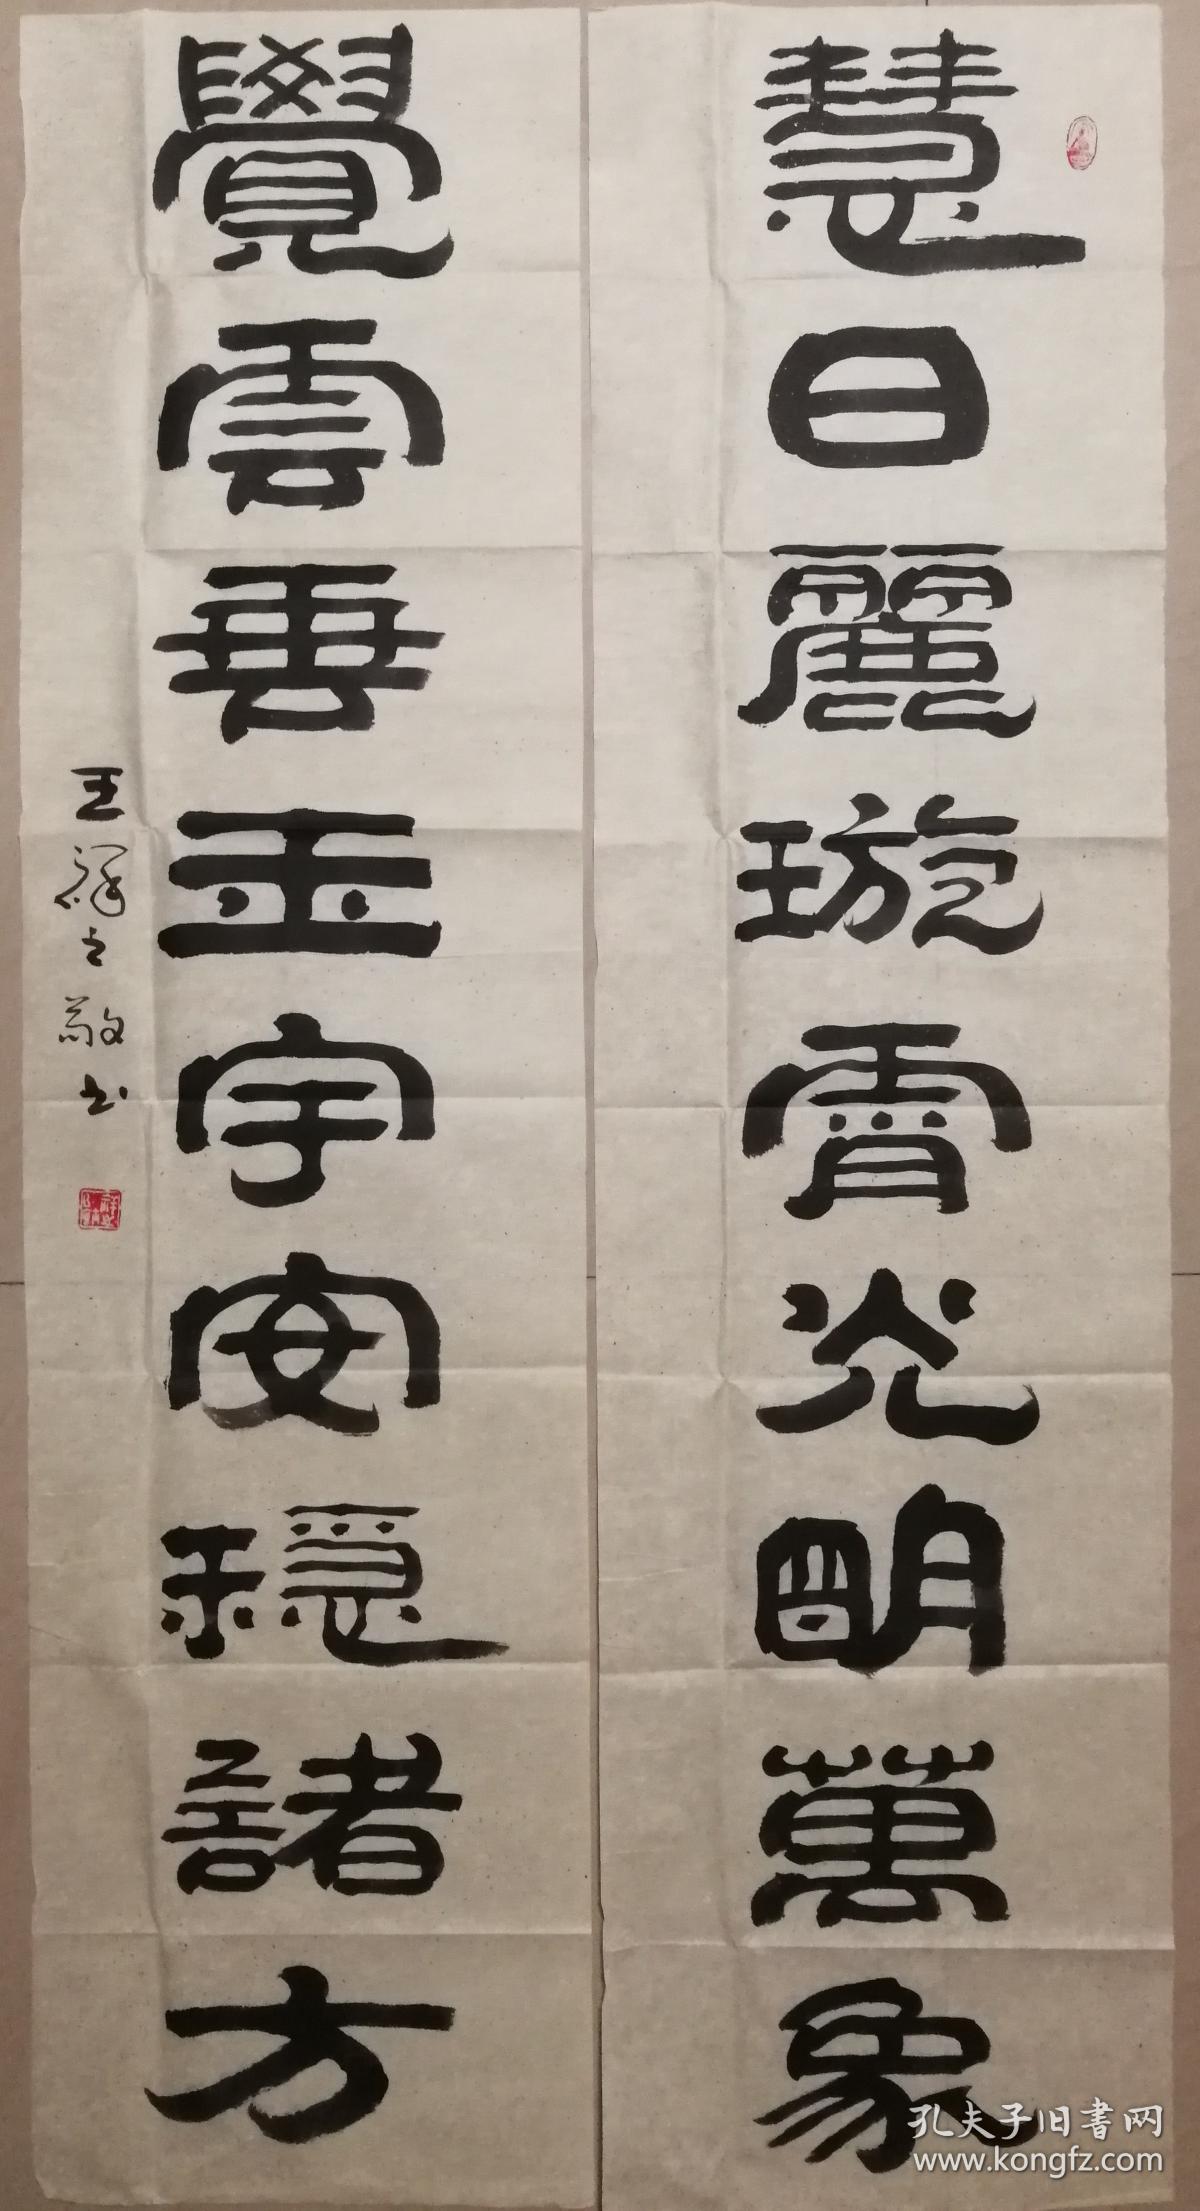 慧日麗璇霄光明萬象
覺雲垂玉宇安穩諸方
王祥之敬书
孔夫子旧書网
www.kongfz.com